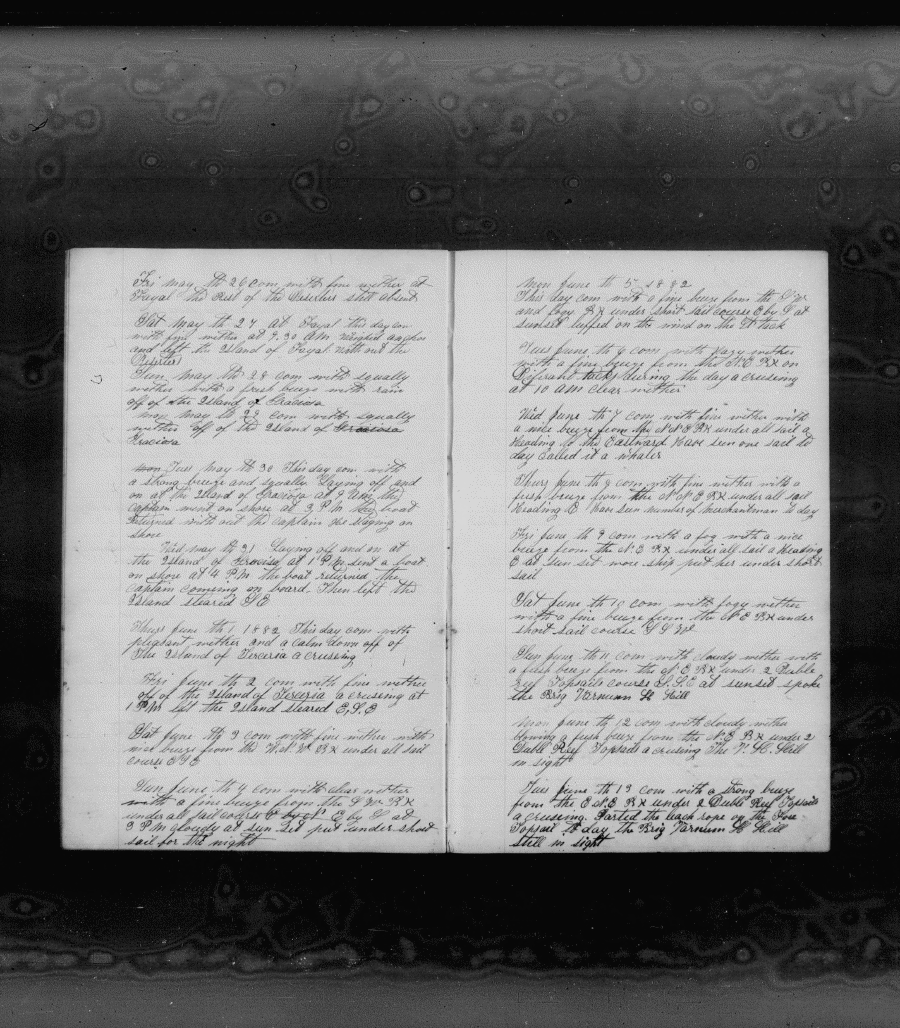 Fri May th 26 com with fine wether at
Fayal The Rest of the Deserters still absent
Sat May th 27 at Fayal this day com
with fine wether at 9.30 AM weighed anchor
and left the Island of Fayal without the
Deserters
Sun May th 28 com with squally
wether with a fresh breeze with rain
off of the Island of Graciosa
mon may th 29 com with squally
wether off of the Island of Graciosa
Graciosa
mon Tues May th 30 This day com with
a strong breeze and squally Laying off and
on at the Island of Graciosa at 9 AM the
Captain went on shore at 3 P.M the boat
returned without the captain he staying on
shore
Wed may th 31 Laying off and on at
the Island of Graciosa at 1 P.M sent a boat
on shore at 4 P.M the boat returned the
captain coming on board. Then left the
Island steared S E
Thurs June th 1 1882 This day com with
pleasant wether and a calm down off of
the Island of Terceria a crussing
Fri June th 2 com with fine wether
off of the Island of Terceria a crussing at
1 P.M left the Island steared E,S,E
Sat June th 3 com with fine wether with
nice breeze from the W.N.W Bx under all sail
course
Sun June th 4 com with clear wether
with a fine breeze from the S W Bx
under all sail course E by N E by S at
3 P M cloudy at sun set put under short
sail for the night
Mon June th 5 1882
This day com with a fine breeze from the S W
and fogy Bx under short sail course E by S at
sunset luffed on the wind on the St tack
Tues June th 6 com with hazy wether
with a fine breeze from the N.E Bx on
Diferant tacks during the day a cruising
at 10 AM clear wether
Wed June th 7 com with fine wether with
a nice breeze from the N N E Bx under all sail a
heading to the Eastward Have seen one sail to
day called it a whaler
Thurs June th 8 com with fine wether with a
fresh breeze from the N N E Bx under all sail
heading E Have seen number of merchantman to day
Fri June th 9 com with a fog with a nice
breeze from the N.E Bx under all sail a heading
E at sun set wore ship put her under short
sail
Sat June th 10 com with fogy wether
with a fine breeze from the N E Bx under
short sail course S S W
Sun June th 11 com with cloudy wether with
a fresh breeze from the N E Bx under 2 Duble
Reef Topsails course S.S.E at sunset spoke
the Brig Varnum H Hill
Mon June th 12 com with cloudy wether
blowing a fresh breeze from the N.E Bx under 2
Dubll Reef Topsails a crusing The V. H. Hill
in sight
Tues June th 13 com with a strong breeze
from the E N E Bx under 2 Duble Reef Topsails
a crussing. Parted the leach rope on the Fore
Topsail to day the Brig Varnum H Hill
still in sight